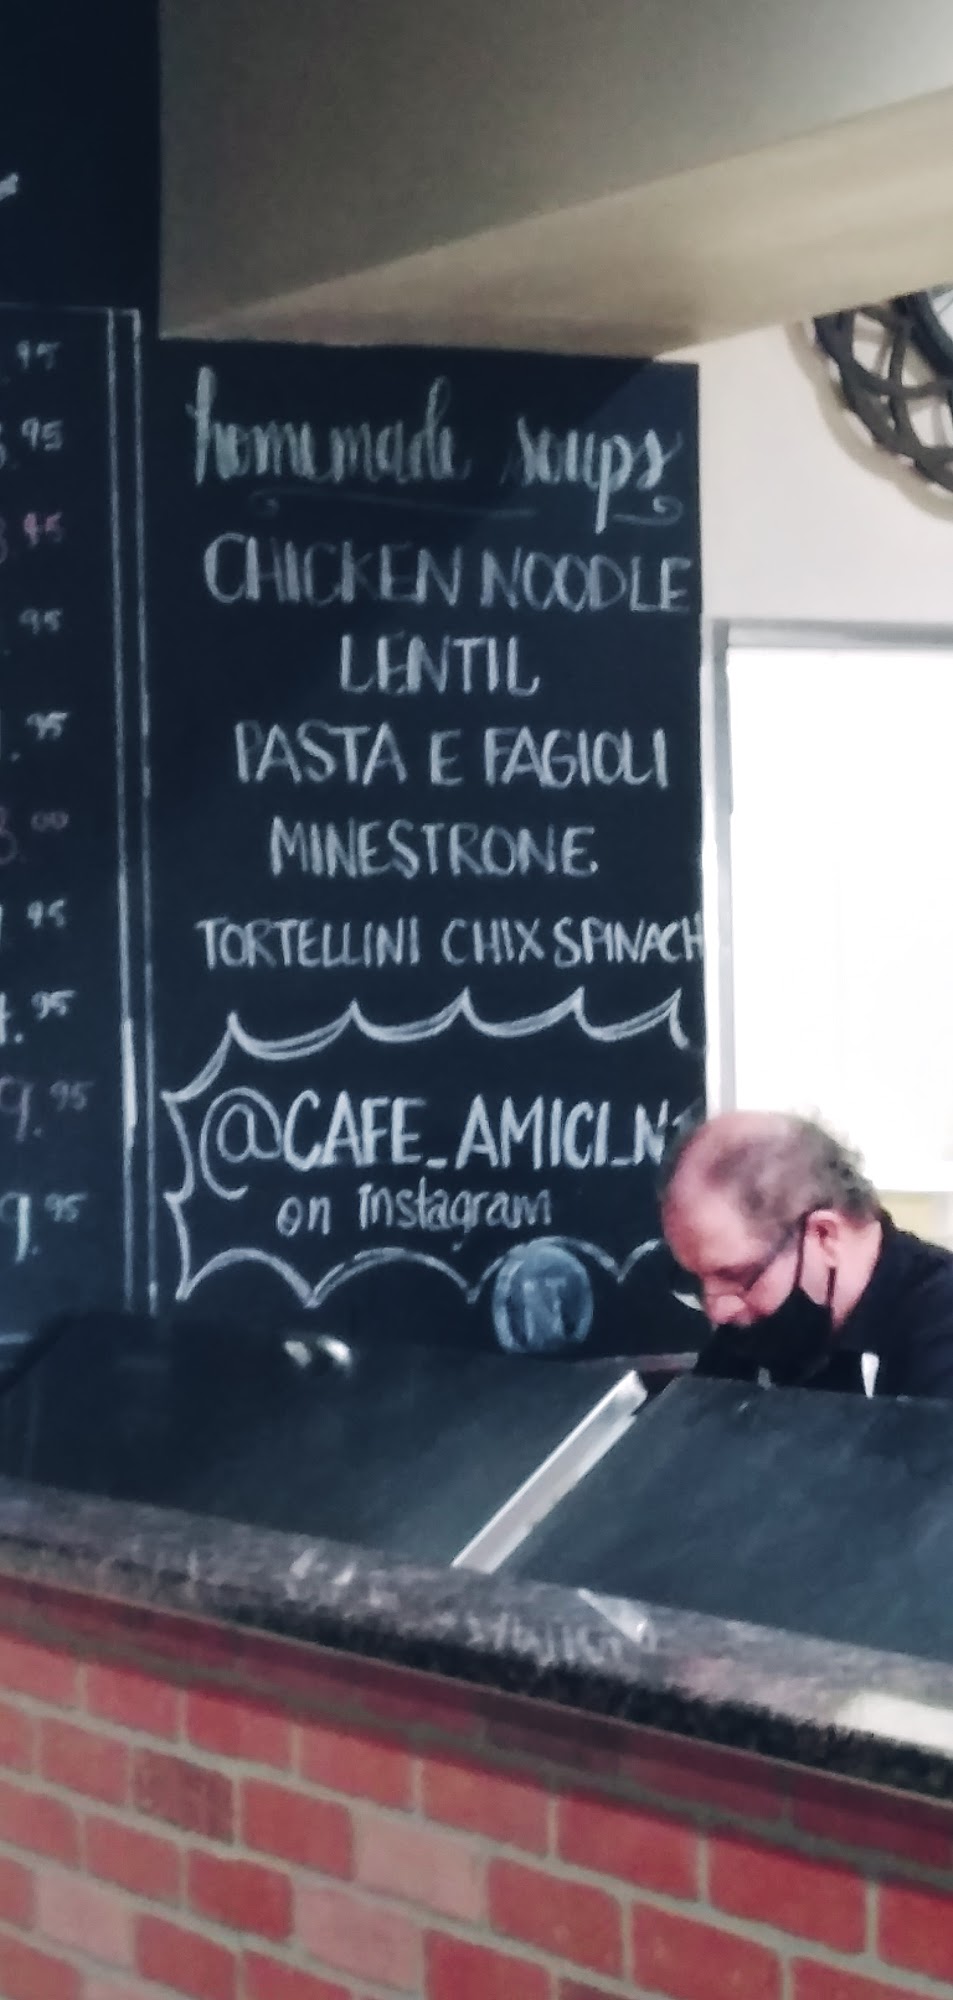 homemade soups
CHICKEN NOODLE
LENTIL
PASTA E FAGIOLI
MINESTRONE
TORTELLINI CHIX SPINACH
@CAFE_AMICI_N
on instagram
.95
.95
.95
.95
.95
.00
.95
.95
9.95
9.95